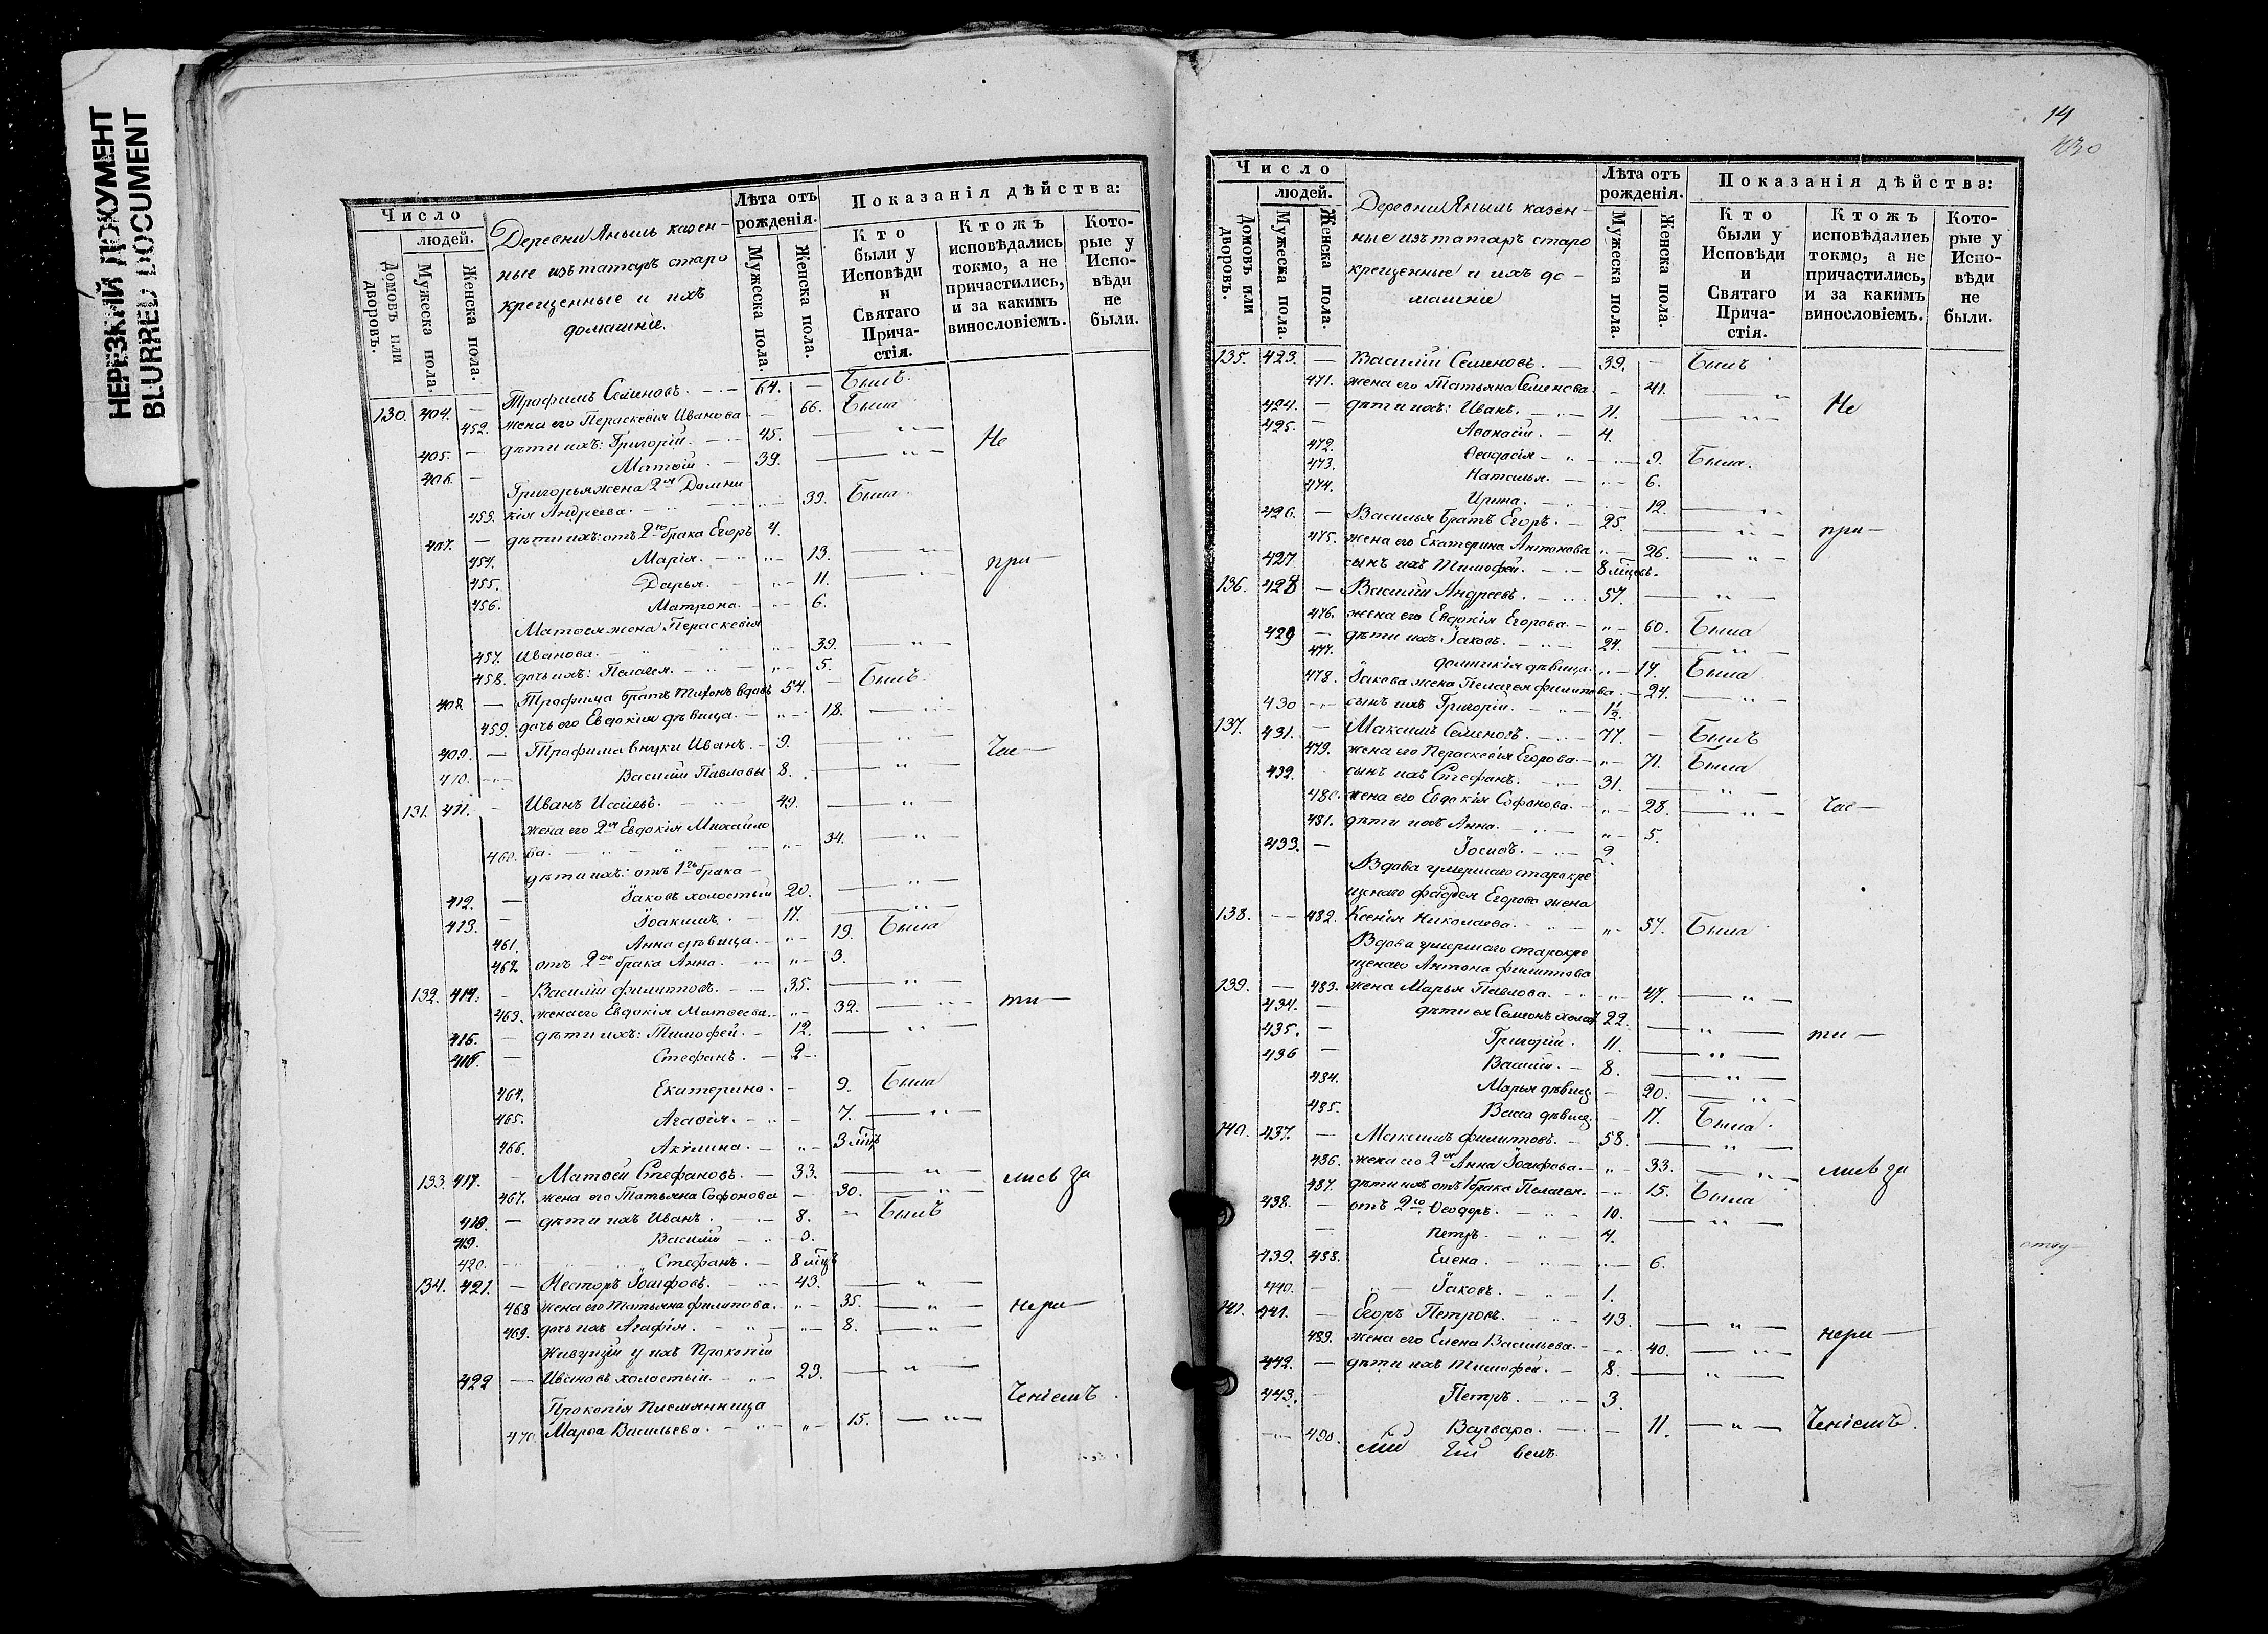 НЕРЕЗКИЙ ДОКУМЕНТ
BLURRED DOCUMENT
Число
людей.
Домовъ или дворовъ.
Мужеска пола.
Женска пола.
Деревни Яныль казен-
ные изъ татаръ старо
крещенные и ихъ
домашніе.
Лѣта отъ рожденія.
Мужеска пола.
Женска пола.
Показанія дѣйства:
Кто были у Исповѣди и Святаго Прича-стія.
Ктожъ исповѣдались токмо, а не причастились, и за какимъ винословіемъ.
Кото-рые у Испо-вѣди не были.
130. 404. — Трофимъ Семеновъ. — 64. — Былъ.
452. жена его Параскевія Иванова — 66. Была
405. — дѣти ихъ: Григорій. — 45. — " — Не
406. — Матѳій. — 39. — " —
Григорья жена 2я Домни
453. кія Андреева. — " — 39. Была.
407. — дѣти ихъ: отъ 2го брака Егоръ 4.
454. Марія. — " — 13. — " — при—
455. Дарья. — " — 11. — " —
456. Матрона. — " — 6.
Матѳея жена Параскевія
457. Иванова. — " — 39. — " —
458. дочь ихъ: Пелагея. — " — 5.
408 — Трофима братъ Тихонъ вдовъ 54. — Былъ.
459. дочь его Евдокія дѣвица. — " — 18. — " —
409. — Трофима внуки Иванъ. — 9. — " — Час—
410. — Василій Павловы 8. — " —
131. 411. — Иванъ Исаевъ. — 49. — " —
жена его 2я Евдокія Михайло
460. ва. — " — 34. — " —
дѣти ихъ: отъ 1го брака —
412. — Іаковъ холостый 20. — " —
413. — Іоакимъ. — 17. — " —
461. Анна дѣвица. — " — 19. Была
462 отъ 2го брака Анна. — " — 3.
132. 414. — Василій Филипповъ. — 35. — " —
463. жена его Евдокія Матѳеева. — " — 32. — " — ти—
415. — дѣти ихъ: Тимофей. — 12. — " —
416. — Стефанъ. — 2 —
464. Екатерина. — 9. Была
465. Агаѳія. — " — 7. — " —
466. Акилина. — " — 3 мѣц
133. 417. — Матѳей Стефановъ. — 33. — " — лись за
467. жена его Татьяна Софонова — 30. — " —
418. — дѣти ихъ Иванъ. — 8. — Былъ
419. Василій — 3.
420. Стефанъ. — 8 мѣцъ
134. 421. — Несторъ Іосифовъ. — 43. — " —
468 жена его Татьяна Филипова. — " — 35. — " — нера—
469. дочь ихъ Агафія. — " — 8. — " —
Живущій у ихъ Прокопій
422 — Ивановъ холостый. — " — 23. — " —
Прокопія племянница Ченіемъ
470. Марѳа Васильева. — " — 15. — " —
14
Число
людей.
Домовъ или дворовъ.
Мужеска пола.
Женска пола.
Деревни Яныль казен-
ные изъ татаръ старо
крещенные и ихъ до-
машніе
Лѣта отъ рожденія.
Мужеска пола.
Женска пола.
Показанія дѣйства:
Кто были у Исповѣди и Святаго Прича-стія.
Ктожъ исповѣдались токмо, а не причастились, и за какимъ винословіемъ.
Кото-рые у Испо-вѣди не были.
135. 423. — Василій Семеновъ. — 39. — Былъ
471. жена его Татьяна Семенова. — 41. — " —
424. — дѣти ихъ: Иванъ. — 11. — " — Не
425. — Аѳонасій. — 4.
472. Ѳеодосія — " — 9. Была.
473. Наталья. — " — 6.
474. Ирина. — 12. — " —
426. — Василья братъ Егоръ. — 25. — " — при—
475. жена его Екатерина Антонова " — 26. — " —
427. сынъ ихъ Тимофей. — 8 мѣцевъ.
136. 428 — Василій Андреевъ. — 57. — " —
476. жена его Евдокія Егорова. — " — 60. Была
429 — дѣти ихъ Іаковъ. — 24. — " —
477. домникія дѣвица. — " — 17. Была
478. Іакова жена Пелагея Филипова. — 24. — " —
430 — сынъ ихъ Григорій. — 1½.
137. 431. — Максимъ Семеновъ. — 77. — Былъ
479. жена его Параскевія Егорова. — " — 71. Была
432. сынъ ихъ Стефанъ. — 31. — " —
480. жена его Евдокія Софонова. — " — 28. — " — час—
481. дѣти ихъ Анна. — " — 5.
433. — Іосифъ. — 9
Вдова умершаго старокре
щенаго Фадея Егорова жена
138. — 482. Ксенія Николаева. — " — 57. Была
Вдова умершаго старокре
щенаго Антона Филиппова
139. — 483. жена Марья Павлова. — " — 47. — " —
434. — дѣти ея Семенъ холос 22. — " — ти—
435. — Григорій. 11. — " —
436 — Василій. — 8. — " —
484. Марья дѣвиц. — 20. — " —
485. Васса дѣвиц. — 17. Была.
140. 437. — Максимъ Филипповъ. — 58. — " —
486. жена его 2я Анна Іосифова. — " — 33. — " — лись за
487. дѣти ихъ отъ 1 брака Пелагея. — " — 15. Была
438. — отъ 2го Ѳеодоръ. — 10. — " —
— Петръ. — " — 4.
439. 488. Елена. — " — 6.
440. — Іаковъ. — " — 1.
141. 441. — Егоръ Петровъ. — 43. — " —
489. жена его Елена Васильева. — " — 40. — " — нера—
442. — дѣти ихъ Тимофей. — 8. — " —
443. — Петръ. — 3.
490. Варвара. — 11. — " — Ченіемъ